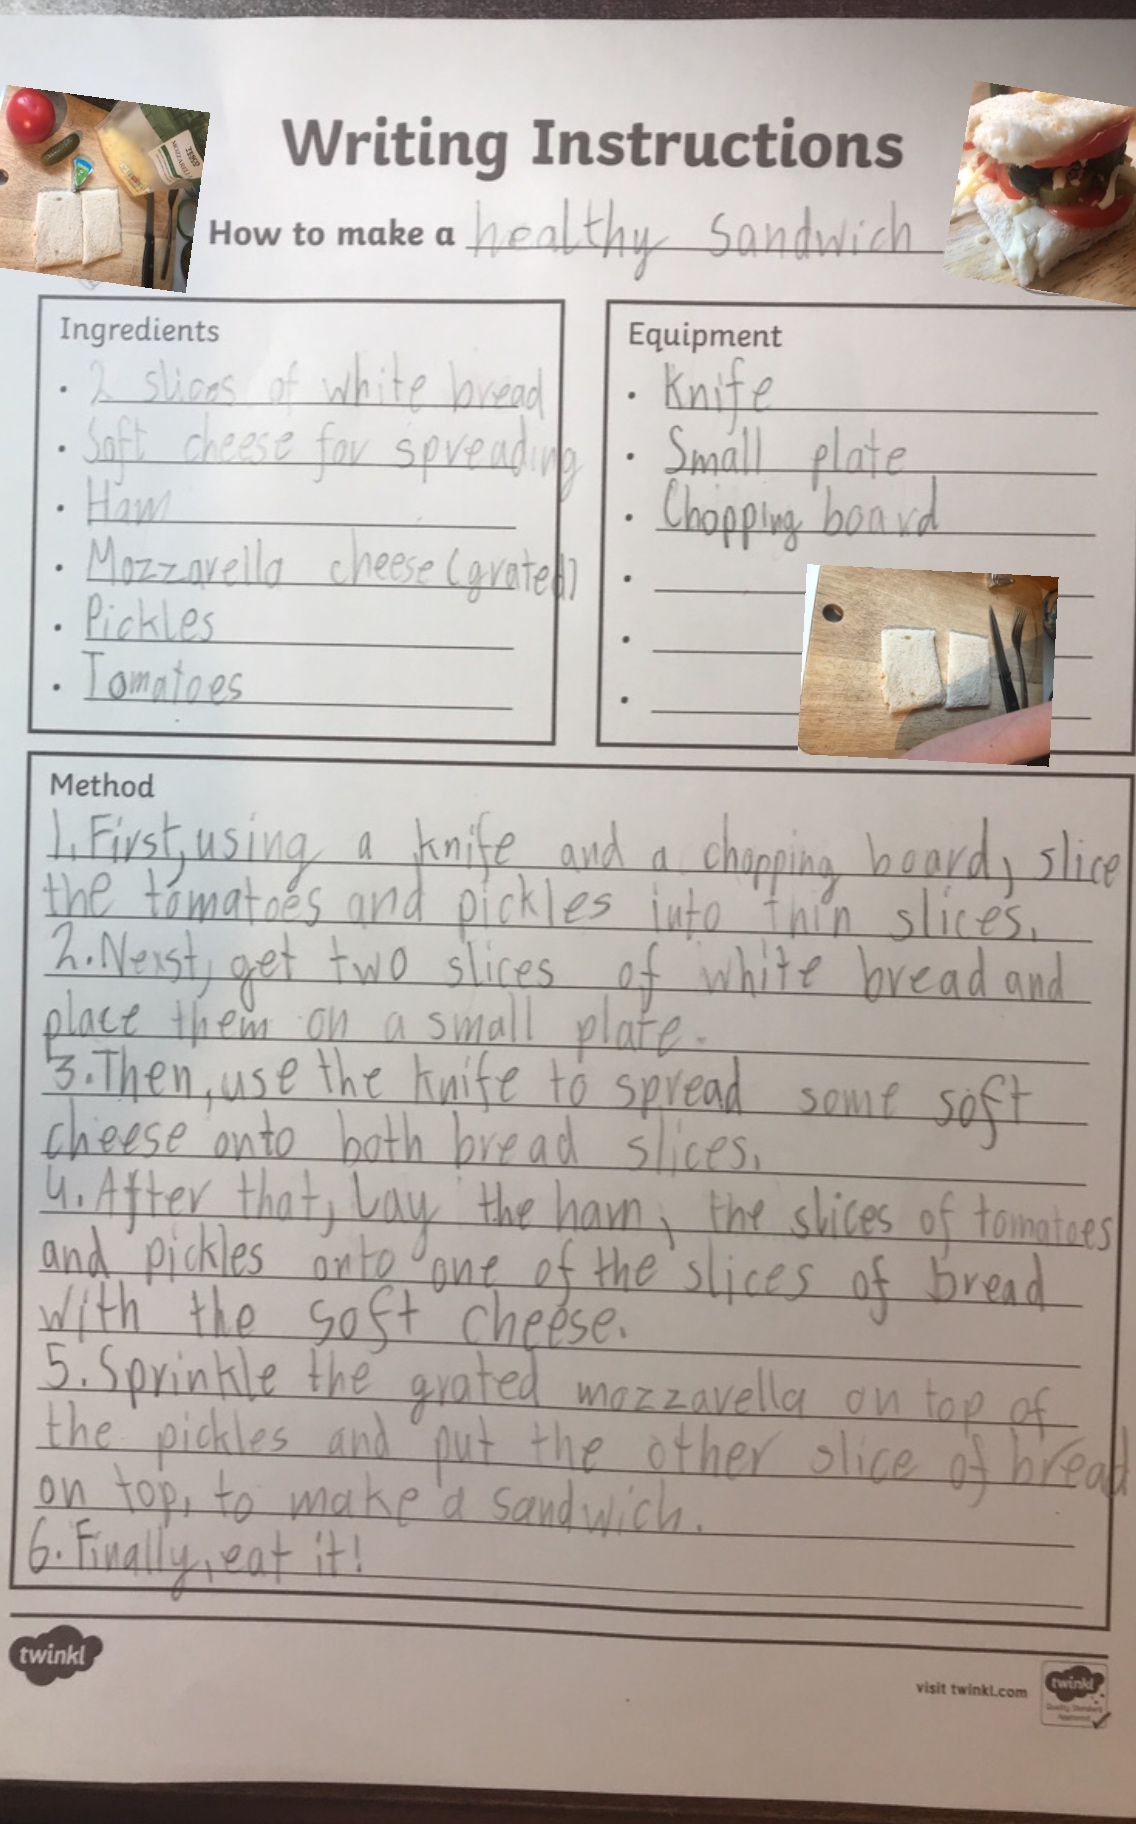 Writing Instructions
How to make a healthy sandwich
Ingredients
• 2 slices of white bread
• Soft cheese for spreading
• Ham
• Mozzarella cheese (grated)
• Pickles
• Tomatoes
Equipment
• Knife
• Small plate
• Chopping board
•
•
•
Method
1. First, using a knife and a chopping board, slice
the tomatoes and pickles into thin slices.
2. Nexst, get two slices of white bread and
place them on a small plate.
3. Then, use the knife to spread some soft
cheese onto both bread slices.
4. After that, lay the ham, the slices of tomatoes
and pickles onto one of the slices of bread
with the soft cheese.
5. Sprinkle the grated mozzarella on top of
the pickles and put the other slice of bread
on top, to make a sandwich.
6. Finally, eat it!
twinkl
visit twinkl.com
twinkl
Quality Standard
Approved
TESCO
MOZZARELLA